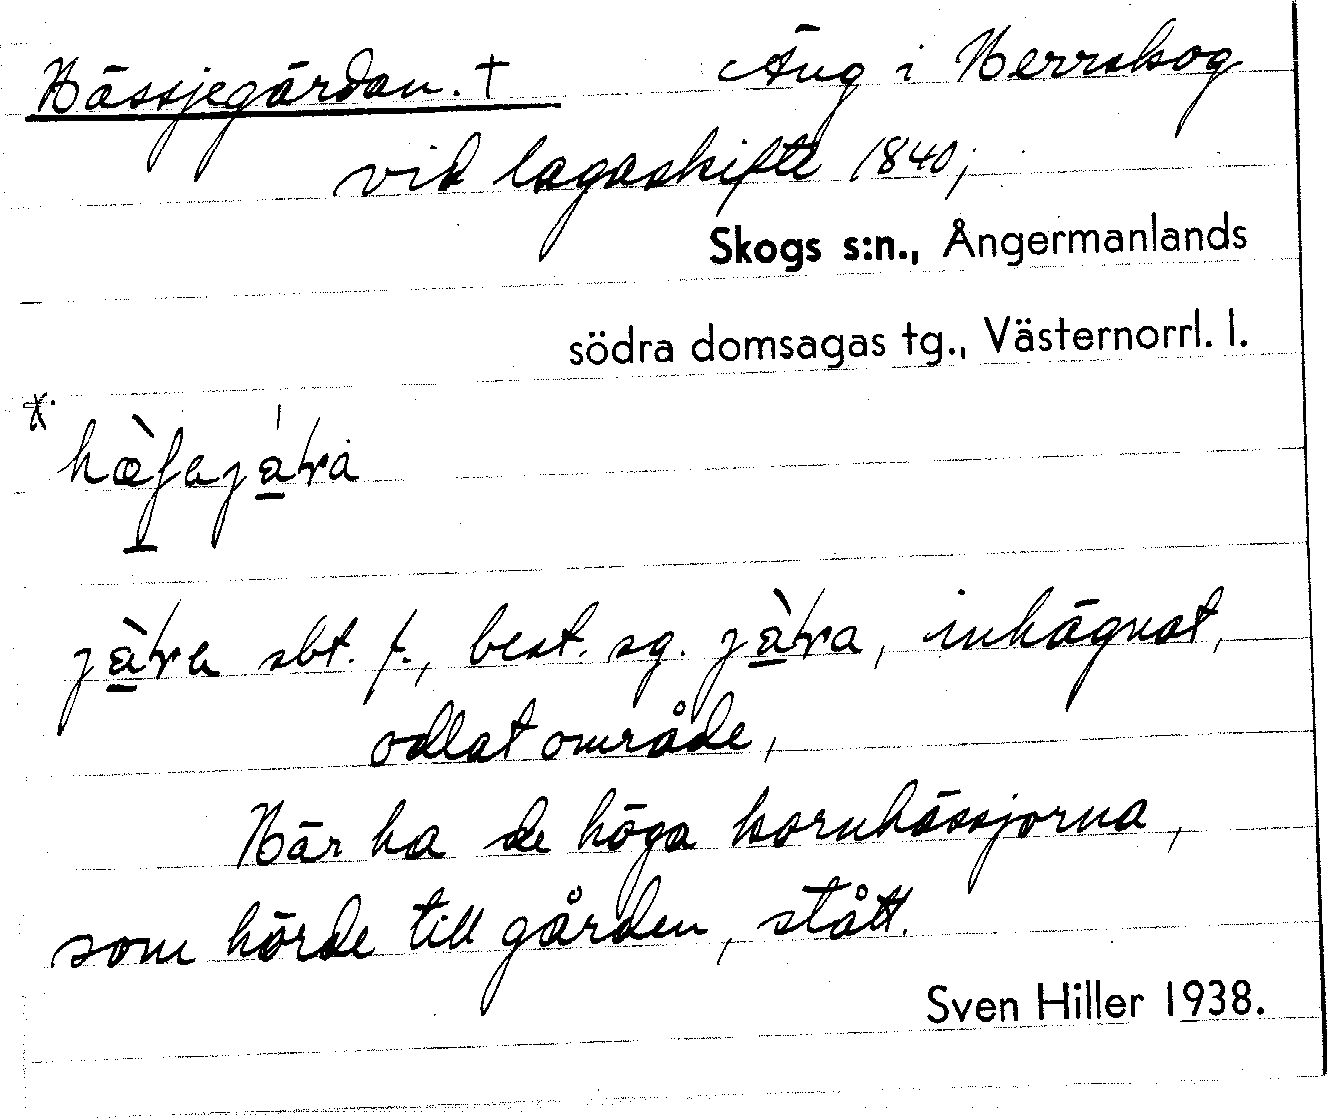 Hässjegärdan. † Äng i Herrskog
vid lagaskifte 1840;
Skogs s:n., Ångermanlands
södra domsagas tg., Västernorrl. l.
sbt. f., best. sg. , inhägnat,
odlat område,
Här ha de höga kornhässjorna,
som hörde till gården, stått.
Sven Hiller 1938.